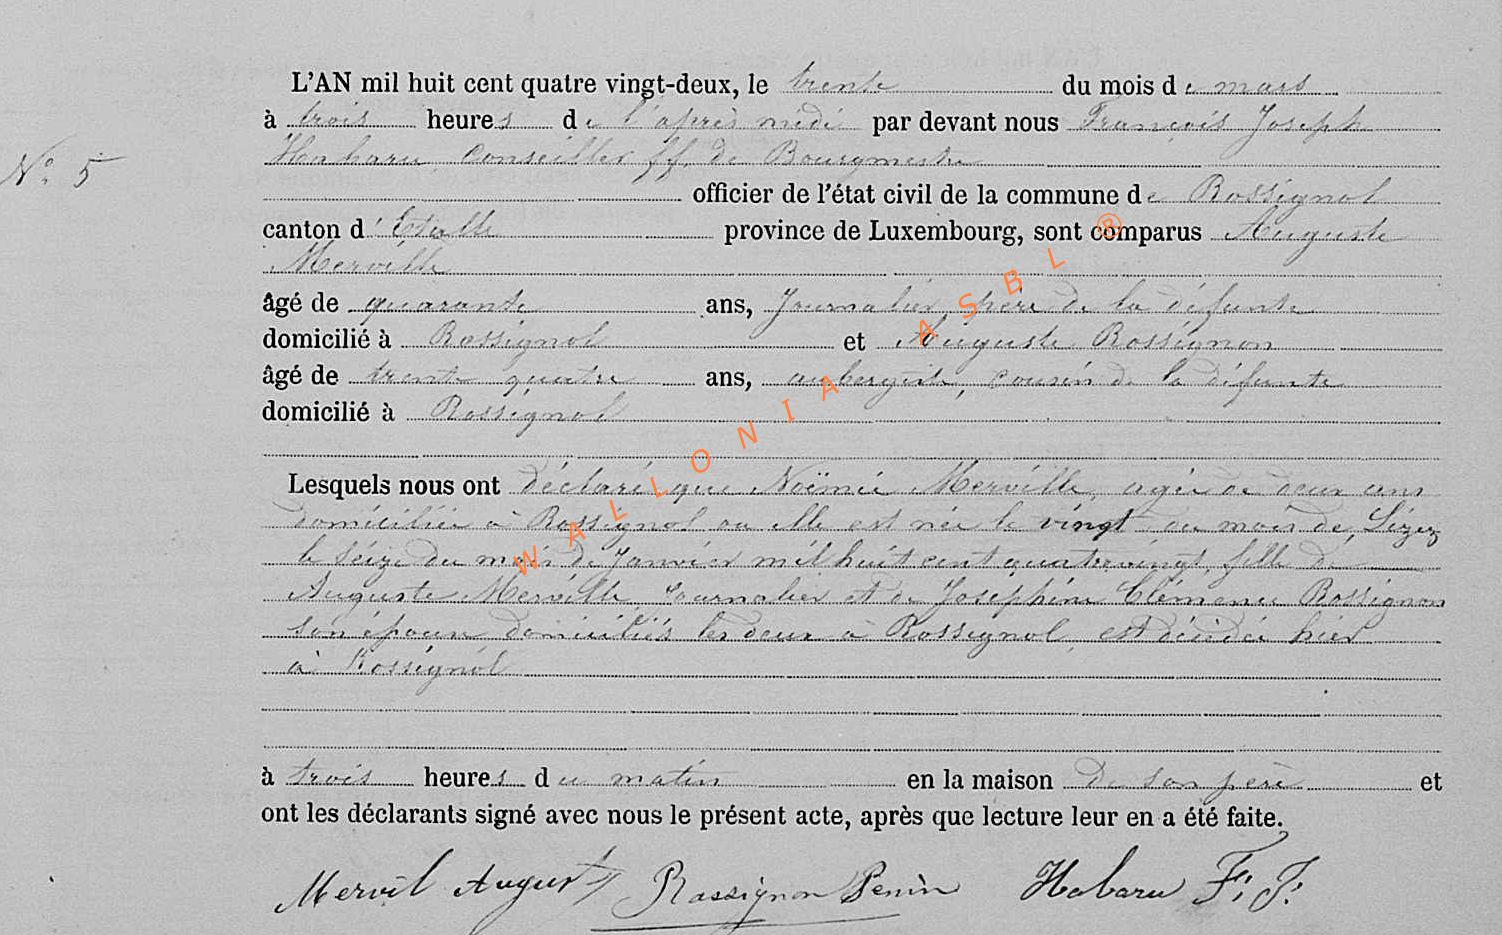 L'AN mil huit cent quatre vingt-deux, le trente du mois de mars
à trois heures de l'après midi par devant nous François Joseph
N° 5
Habaru Conseiller ff. de Bourgmestre
officier de l'état civil de la commune de Rossignol
canton d'Etalle province de Luxembourg, sont comparus Auguste
Merville
âgé de quarante ans, Journalier, père de la défunte
domicilié à Rossignol et Auguste Rossignon
âgé de trente quatre ans, aubergiste, cousin de la défunte
domicilié à Rossignol
Lesquels nous ont déclaré que Noëmie Merville, agée de deux ans
domiciliée à Rossignol ou elle est née le vingt du mois de,
le seize du mois de Janvier mil huit cent quatre vingt, fille de
Auguste Merville Journalier et de Joséphine Clémence Rossignon
son épouse domiciliés les deux à Rossignol, est décédée hier
à Rossignol
à trois heures du matin en la maison de son père et
ont les déclarants signé avec nous le présent acte, après que lecture leur en a été faite.
Mervil August Rossignon Penin Habaru F. J.
WALLONIA ASBL ®